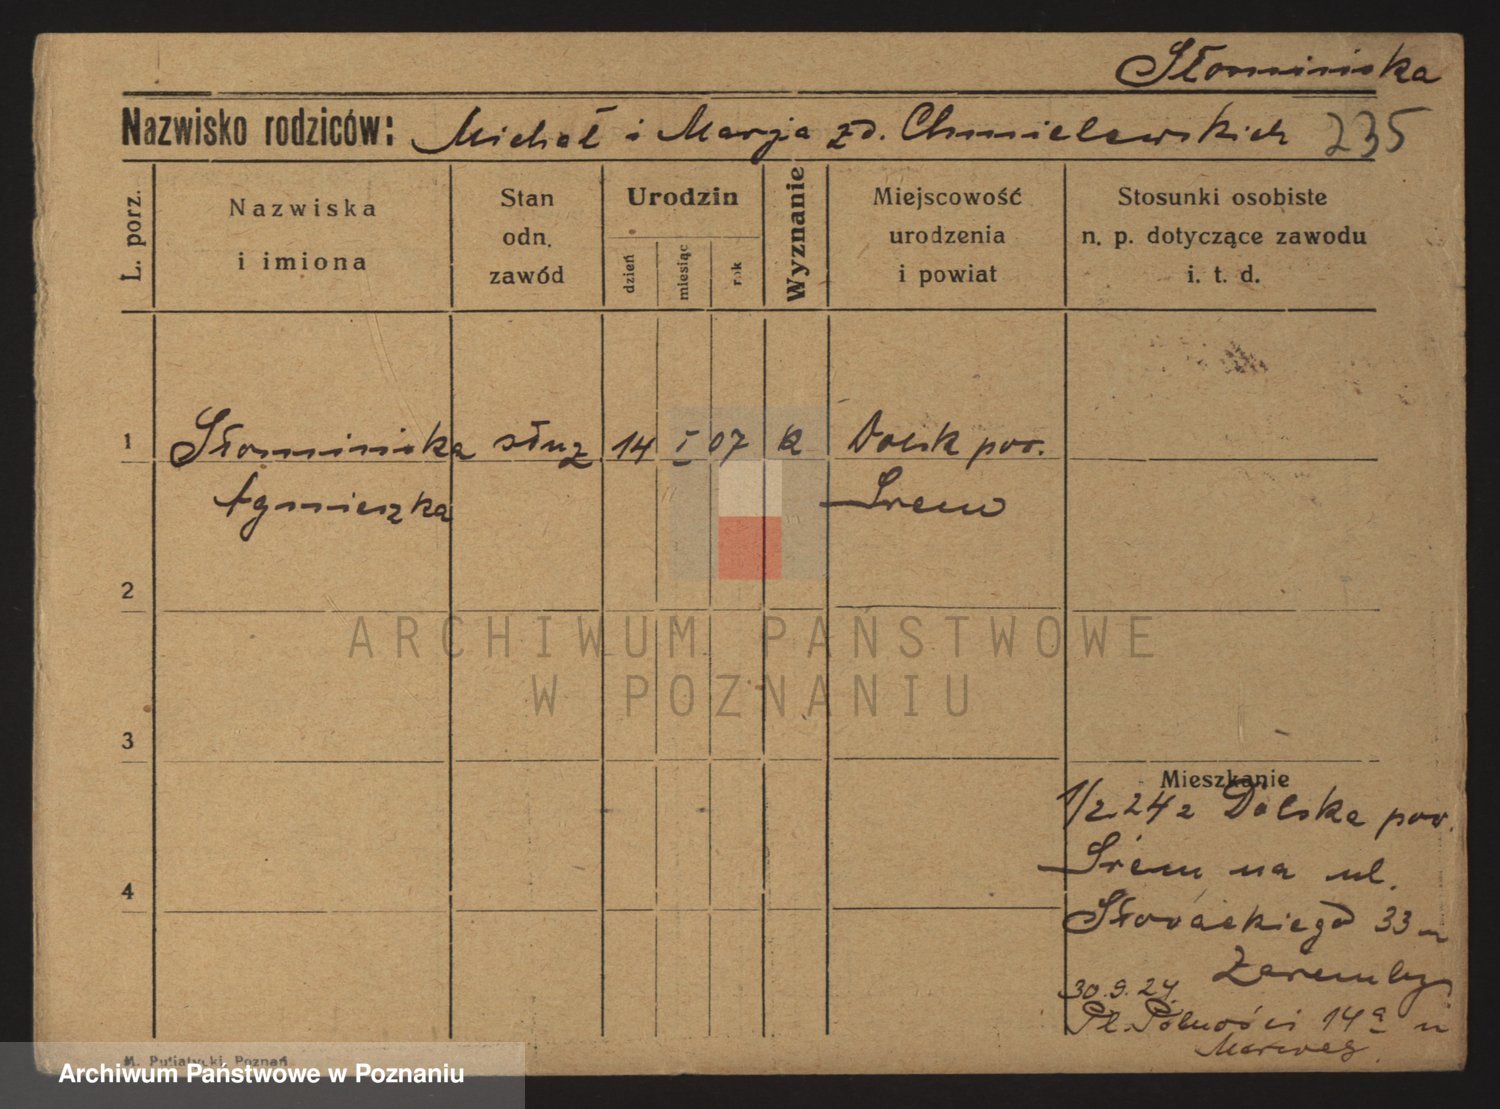 Słomińska
Nazwisko rodziców: Michał i Marja zd. Chmielewskich 235
L. porz.
Nazwiska
i imiona
Stan
odn.
zawód
Urodzin
dzień
miesiąc
rok
Wyznanie
Miejscowość
urodzenia
i powiat
Stosunki osobiste
n. p. dotyczące zawodu
i. t. d.
1 Słomińska służ 14 I 07 k Dolsk pow.
Agnieszka Śrem
2
ARCHIWUM PAŃSTWOWE
W POZNANIU
3
Mieszkanie
1/2.24 z Dolska pow.
4
Śrem na ul.
Słowackiego 33 u
Zaremby
30.9.24.
Pl. Wolności 14a u
M. Putiatycki, Poznań
Archiwum Państwowe w Poznaniu